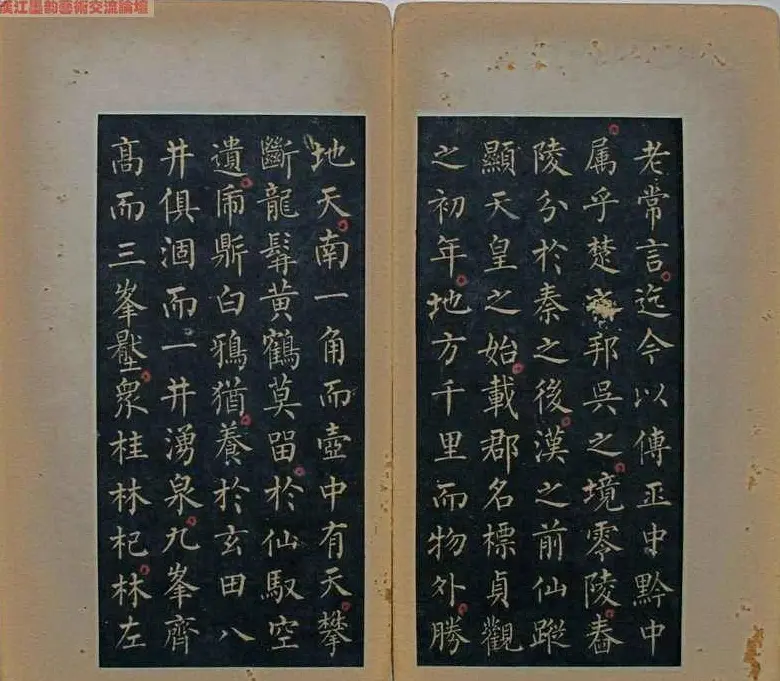 漢江墨韵藝術交流論壇
老常言迄今以傳丕中黔中
属乎楚之邦吳之境零陵春
陵分於秦之後漢之前仙蹤
顯天皇之始載郡名標貞觀
之初年地方千里而物外勝
地天南一角而壺中有天攀
斷龍髯黃鶴莫畱於仙馭空
遺鼎白鵶猶養於玄田八
井俱涸而一井湧泉九峯齊
高而三峯壓衆桂林杞林左